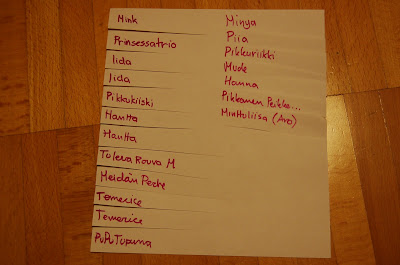 Mink
Prinsessatrio
Iida
Iida
Pikkukiiski
Hantta
Hantta
Tuleva Rouva M
Meidän Perhe
Temerice
Temerice
PuPuTupuna
Minya
Piia
Pikkuriikki
Mude
Hanna
Pikkanen Peikko...
Minttuliisa (Aro)